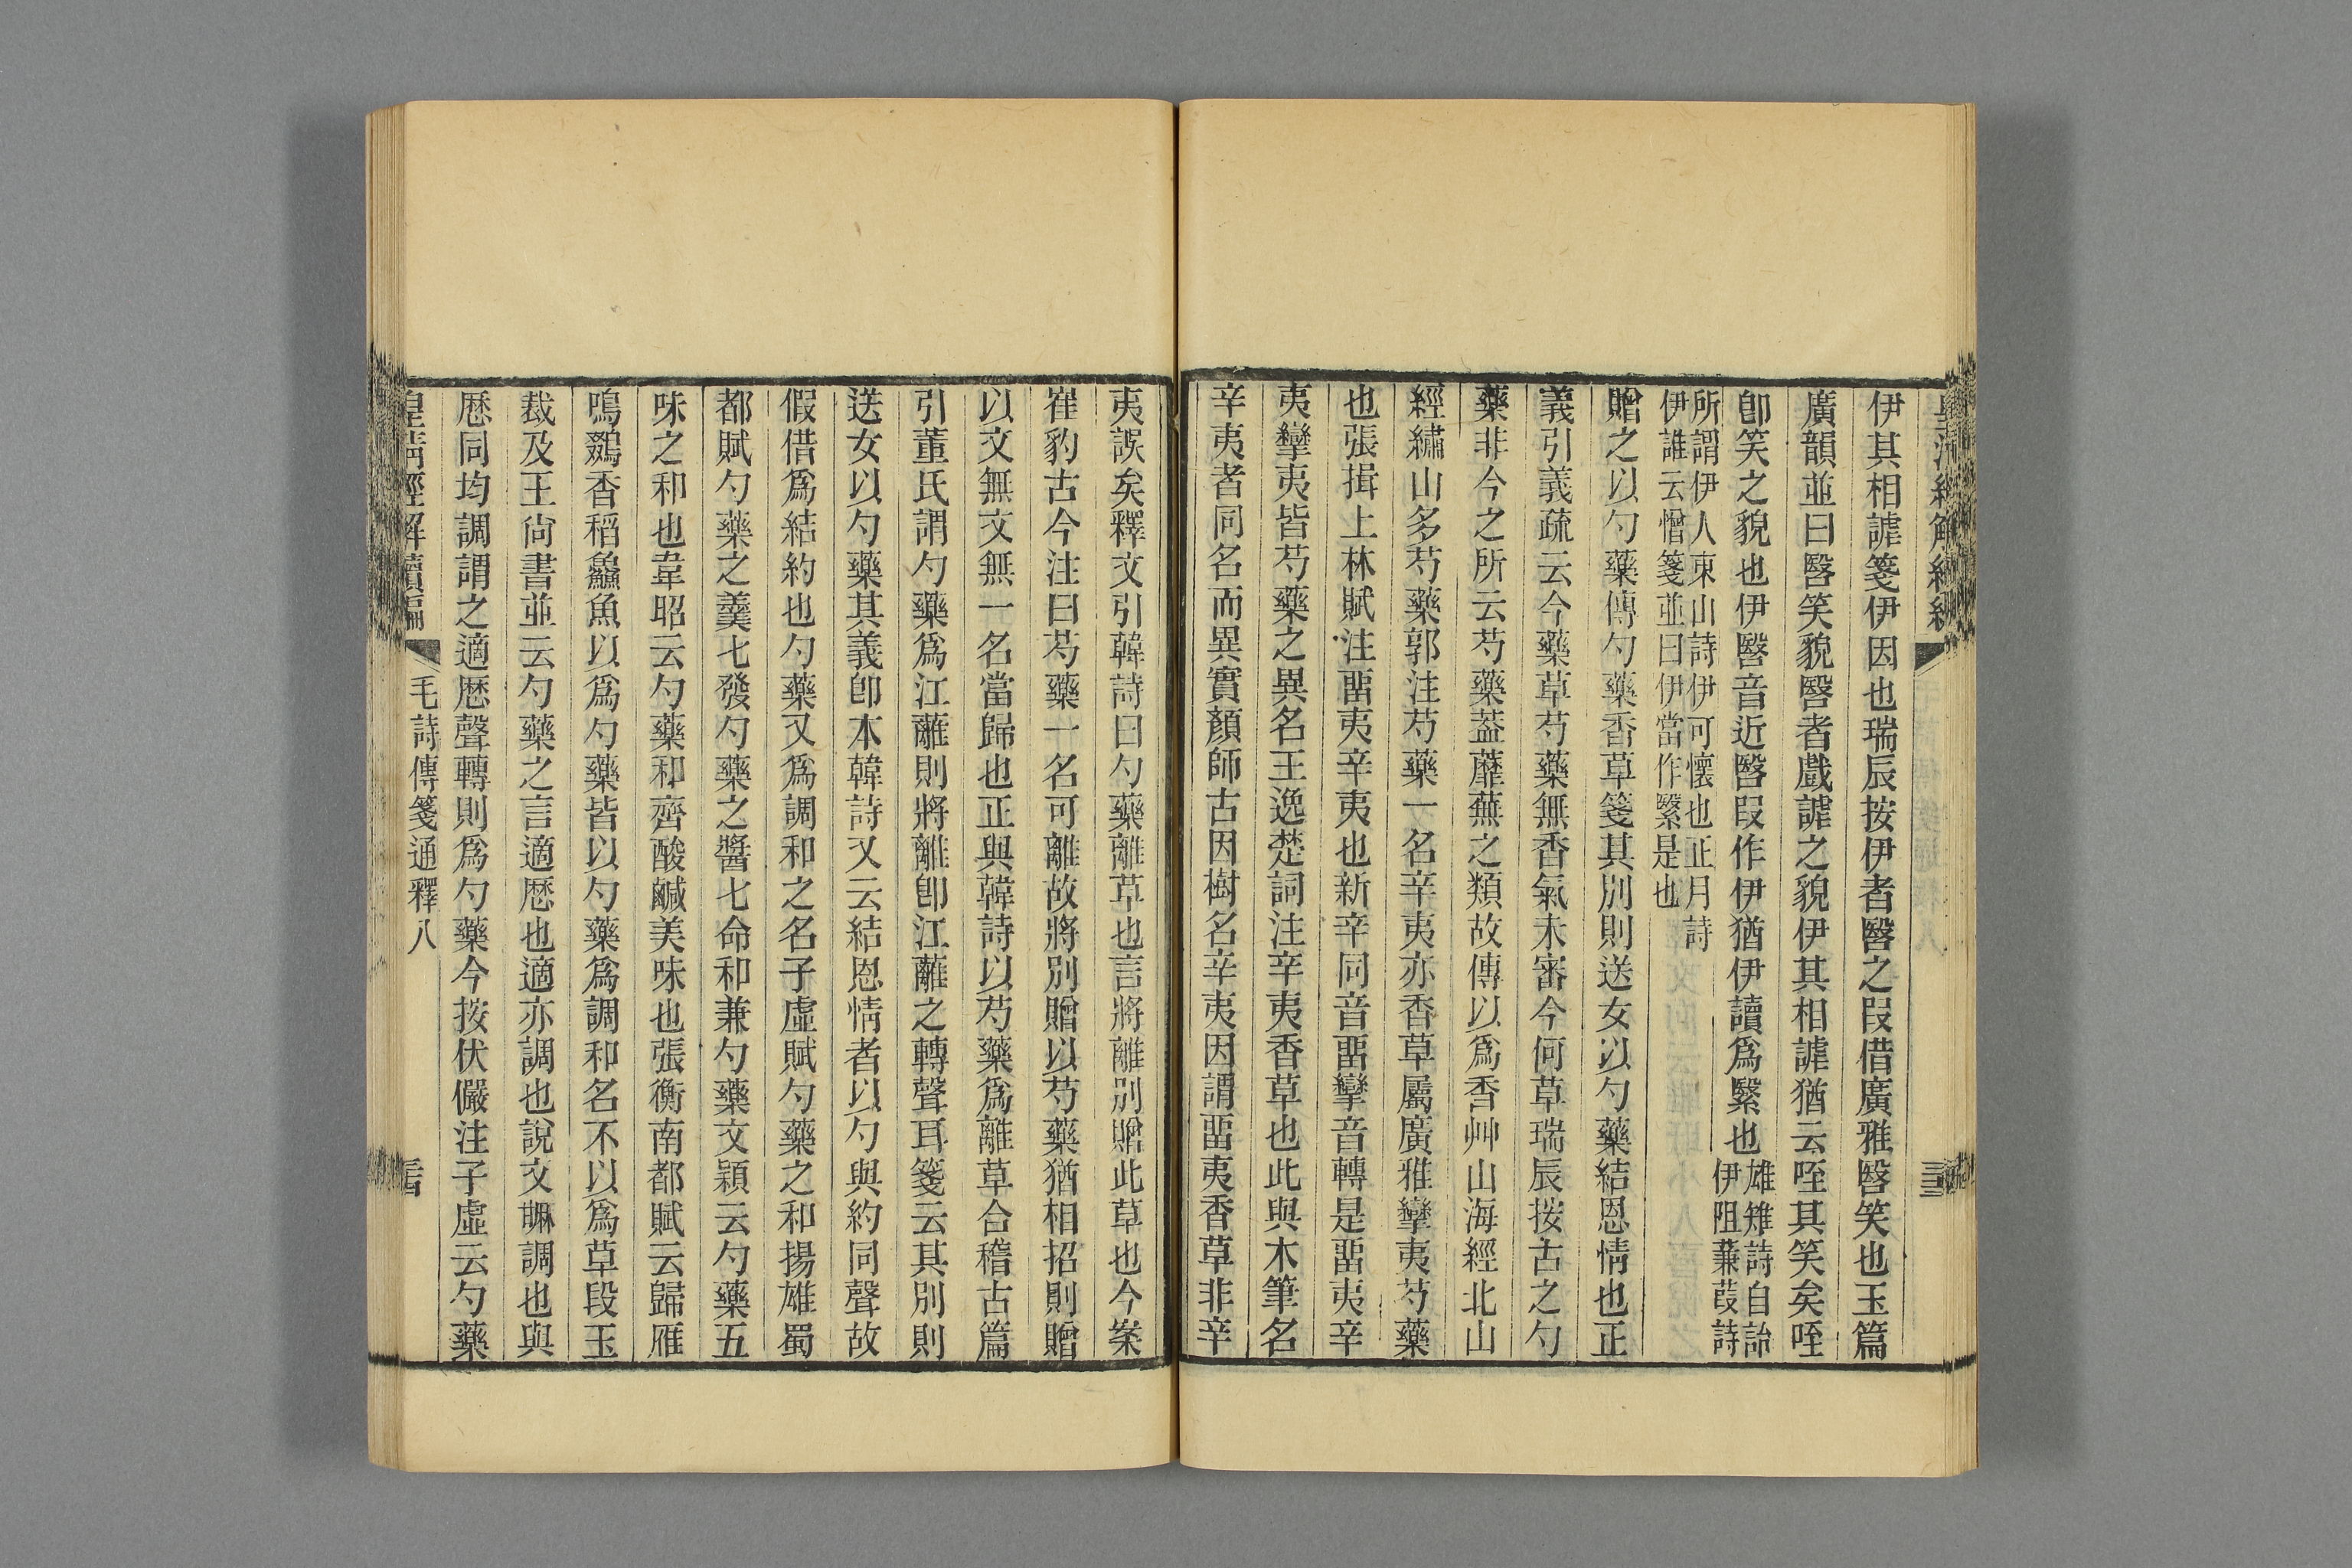 伊其相謔箋伊因也瑞辰按伊者瞖之叚借廣雅瞖笑也玉篇
廣韻並曰瞖笑貌瞖者戲謔之貌伊其相謔猶云咥其笑矣咥
卽笑之貌也伊瞖音近瞖叚作伊猶伊讀爲繄也雄雉詩自詒伊阻蒹葭詩
所謂伊人東山詩伊可懷也正月詩伊誰云憎箋並曰伊當作繄是也
贈之以勺藥傳勺藥香草箋其別則送女以勺藥結恩情也正
義引義疏云今藥草芍藥無香氣未審今何草瑞辰按古之勺
藥非今之所云芍藥葢蘼蕪之類故傳以爲香艸山海經北山
經繡山多芍藥郭注芍藥一名辛夷亦香草屬廣雅攣夷芍藥
也張揖上林賦注畱夷辛夷也新辛同音畱攣音轉是畱夷辛
夷攣夷皆芍藥之異名王逸楚詞注辛夷香草也此與木筆名
辛夷者同名而異實顏師古因樹名辛夷因謂畱夷香草非辛
夷誤矣釋文引韓詩曰勺藥離草也言將離別贈此草也今案
崔豹古今注曰芍藥一名可離故將別贈以芍藥猶相招則贈
以文無文無一名當歸也正與韓詩以芍藥爲離草合稽古篇
引董氏謂勺藥爲江蘺則將離卽江蘺之轉聲耳箋云其別則
送女以勺藥其義卽本韓詩又云結恩情者以勺與約同聲故
假借爲結約也勺藥又爲調和之名子虛賦勺藥之和揚雄蜀
都賦勺藥之羹七發勺藥之醬七命和兼勺藥文穎云勺藥五
味之和也韋昭云勺藥和齊酸鹹美味也張衡南都賦云歸雁
鳴鵽香稻鱻魚以爲勺藥皆以勺藥爲調和名不以爲草段玉
裁及王尙書並云勺藥之言適厯也適亦調也說文㽁調也與
厯同均調謂之適厯聲轉則爲勺藥今按伏儼注子虛云勺藥
皇淸經解續編 毛詩傳箋通釋八